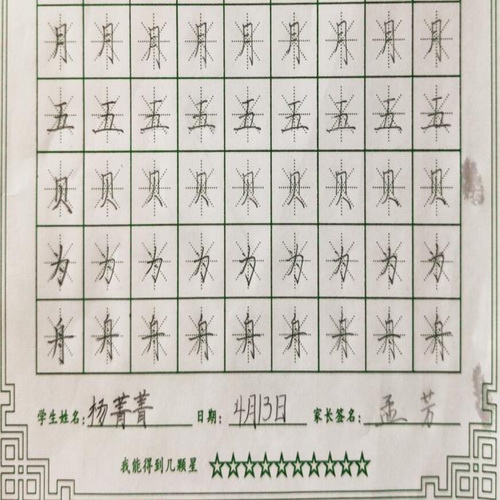 月月月月月月月月月
五五五五五五五五五
贝贝贝贝贝贝贝贝贝
为为为为为为为为为
舟舟舟舟舟舟舟舟舟
学生姓名:杨菁菁 日期:4月13日 家长签名:孟芳
我能得到几颗星 ☆☆☆☆☆☆☆☆☆☆